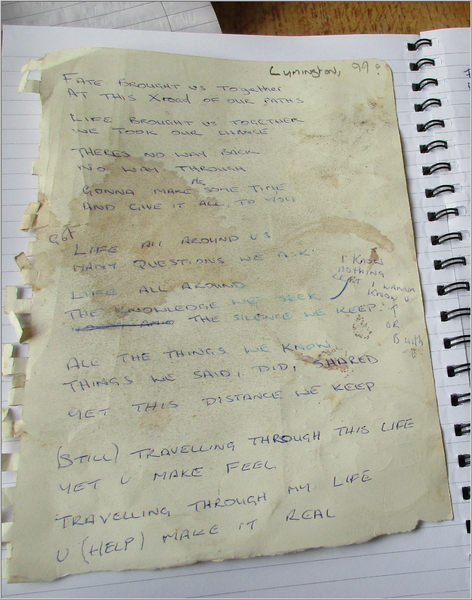 Lymington, 99:
FATE BROUGHT US TOGETHER
AT THIS XROAD OF OUR PATHS
LIFE BROUGHT US TOGETHER
WE TOOK OUR CHANCE
THERES NO WAY BACK
NO WAY THROUGH
GONNA MAKE ME SOME TIME
AND GIVE IT ALL, TO YOU
GOT
LIFE ALL AROUND US
MANY QUESTIONS WE ASK
LIFE ALL AROUND
THE KNOWLEDGE WE SEEK
THE SILENCE WE KEEP
I KNOW
NOTHING
CEPT I WANNA
KNOW U
OR
B with
U
ALL THE THINGS WE KNOW
THINGS WE SAID, DID, SHARED
YET THIS DISTANCE WE KEEP
(STILL) TRAVELLING THROUGH THIS LIFE
YET U MAKE FEEL
TRAVELLING THROUGH MY LIFE
U (HELP) MAKE IT REAL